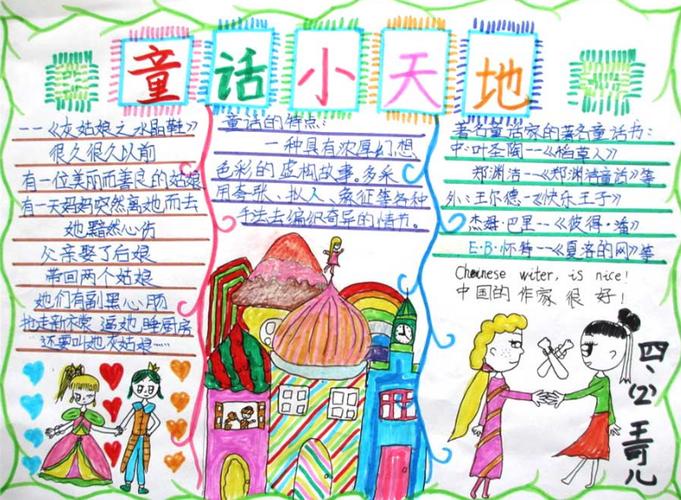 童话小天地
--《灰姑娘之水晶鞋》
很久很久以前
有一位美丽而善良的姑娘
有一天妈妈突然离她而去
她黯然心伤
父亲娶了后娘
带回两个姑娘
她们有副黑心肠
抢走新衣裳 逼她睡厨房
还要叫她灰姑娘……
童话的特点:
一种具有浓厚幻想
色彩的虚构故事。多采
用夸张、拟人、象征等各种
手法去编织奇异的情节。
著名童话家的著名童话书:
中:叶圣陶--《稻草人》
郑渊洁--《郑渊洁童话》等
外:王尔德-《快乐王子》
杰姆·巴里--《彼得·潘》
E·B·怀特--《夏洛的网》等
Cheinese witer, is nice!
中国的作家很好!
四、(2) 王奇儿